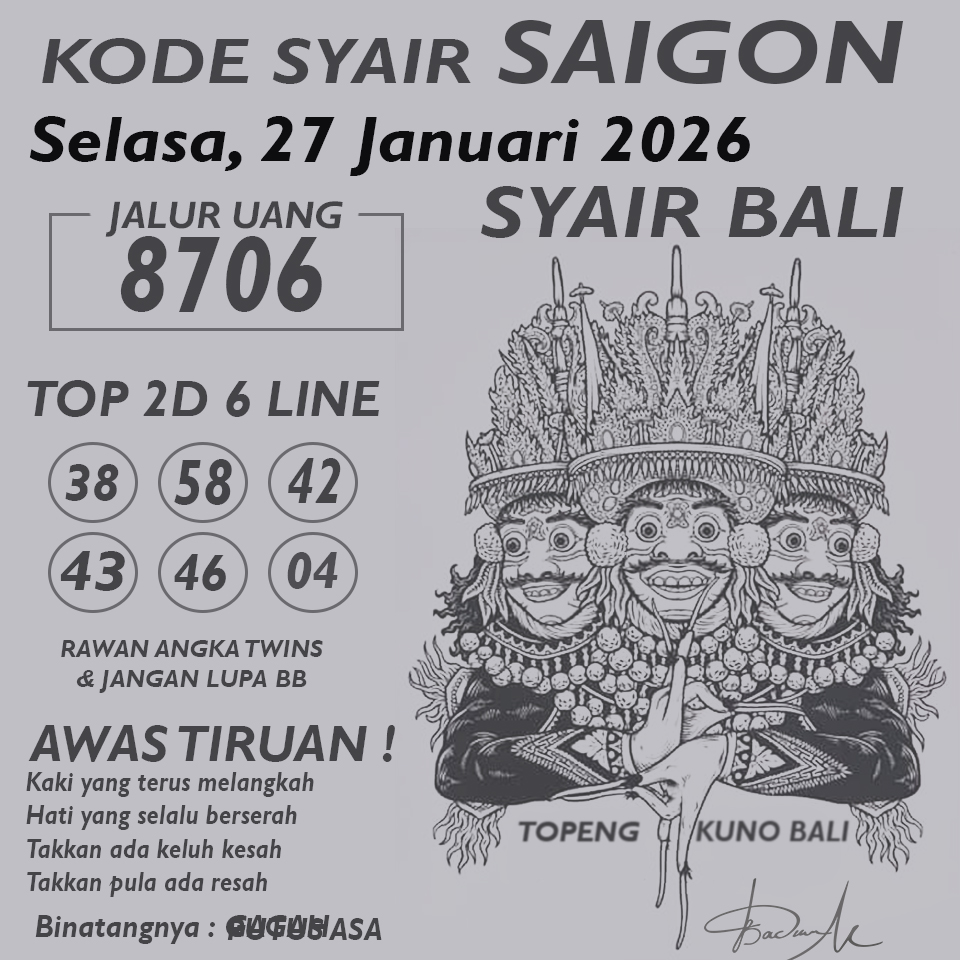 KODE SYAIR SAIGON
Selasa, 27 Januari 2026
SYAIR BALI
JALUR UANG
8706
TOP 2D 6 LINE
38 58 42
43 46 04
RAWAN ANGKA TWINS
& JANGAN LUPA BB
AWAS TIRUAN !
Kaki yang terus melangkah
Hati yang selalu berserah
Takkan ada keluh kesah
Takkan pula ada resah
Binatangnya :
TOPENG KUNO BALI